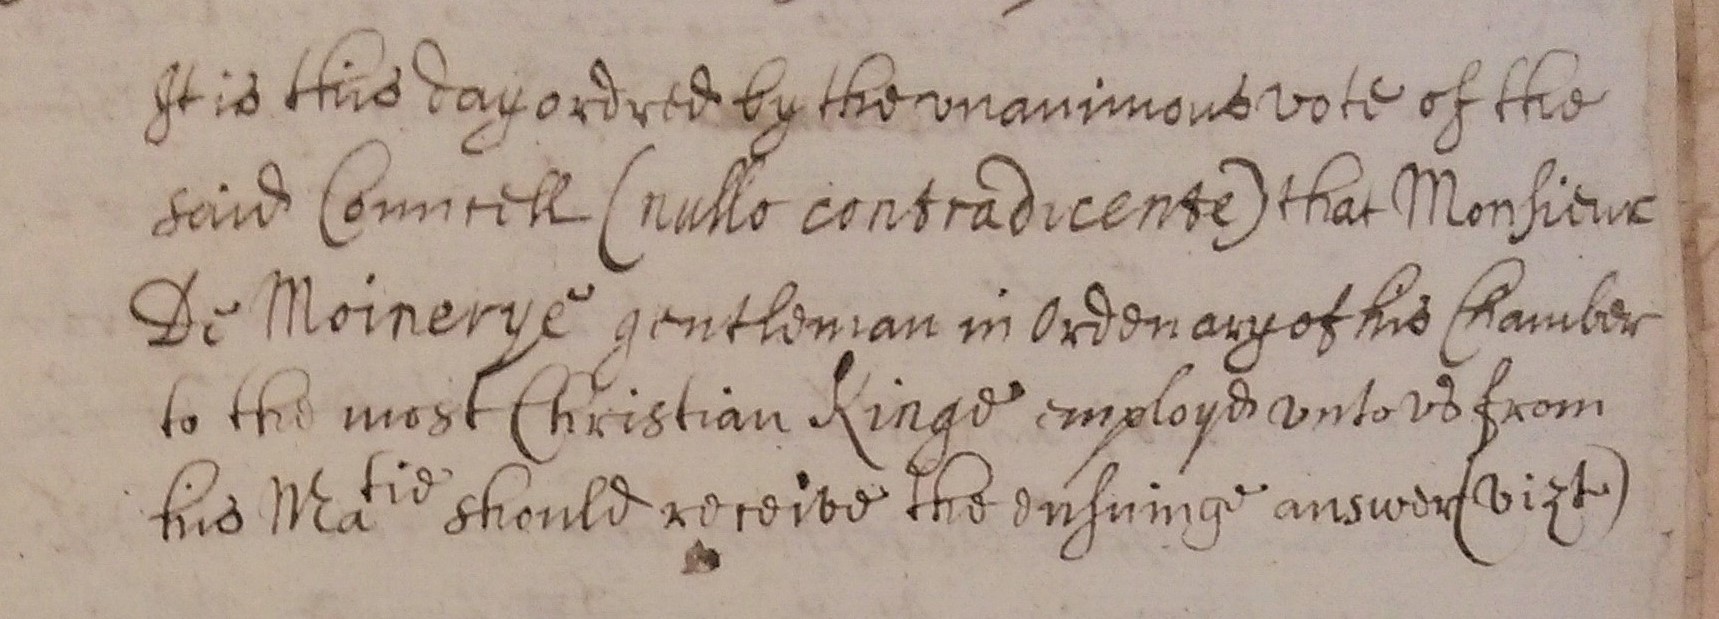 It is this day ordred by the vnanimous vote of the
said Councell (nullo contradicente) that Monsieur
De Moinerye gentleman in Ordenary of his Chamber
to the most Christian Kinge employd vnto vs from
his Matie should receive the ensuinge answer (vizt)